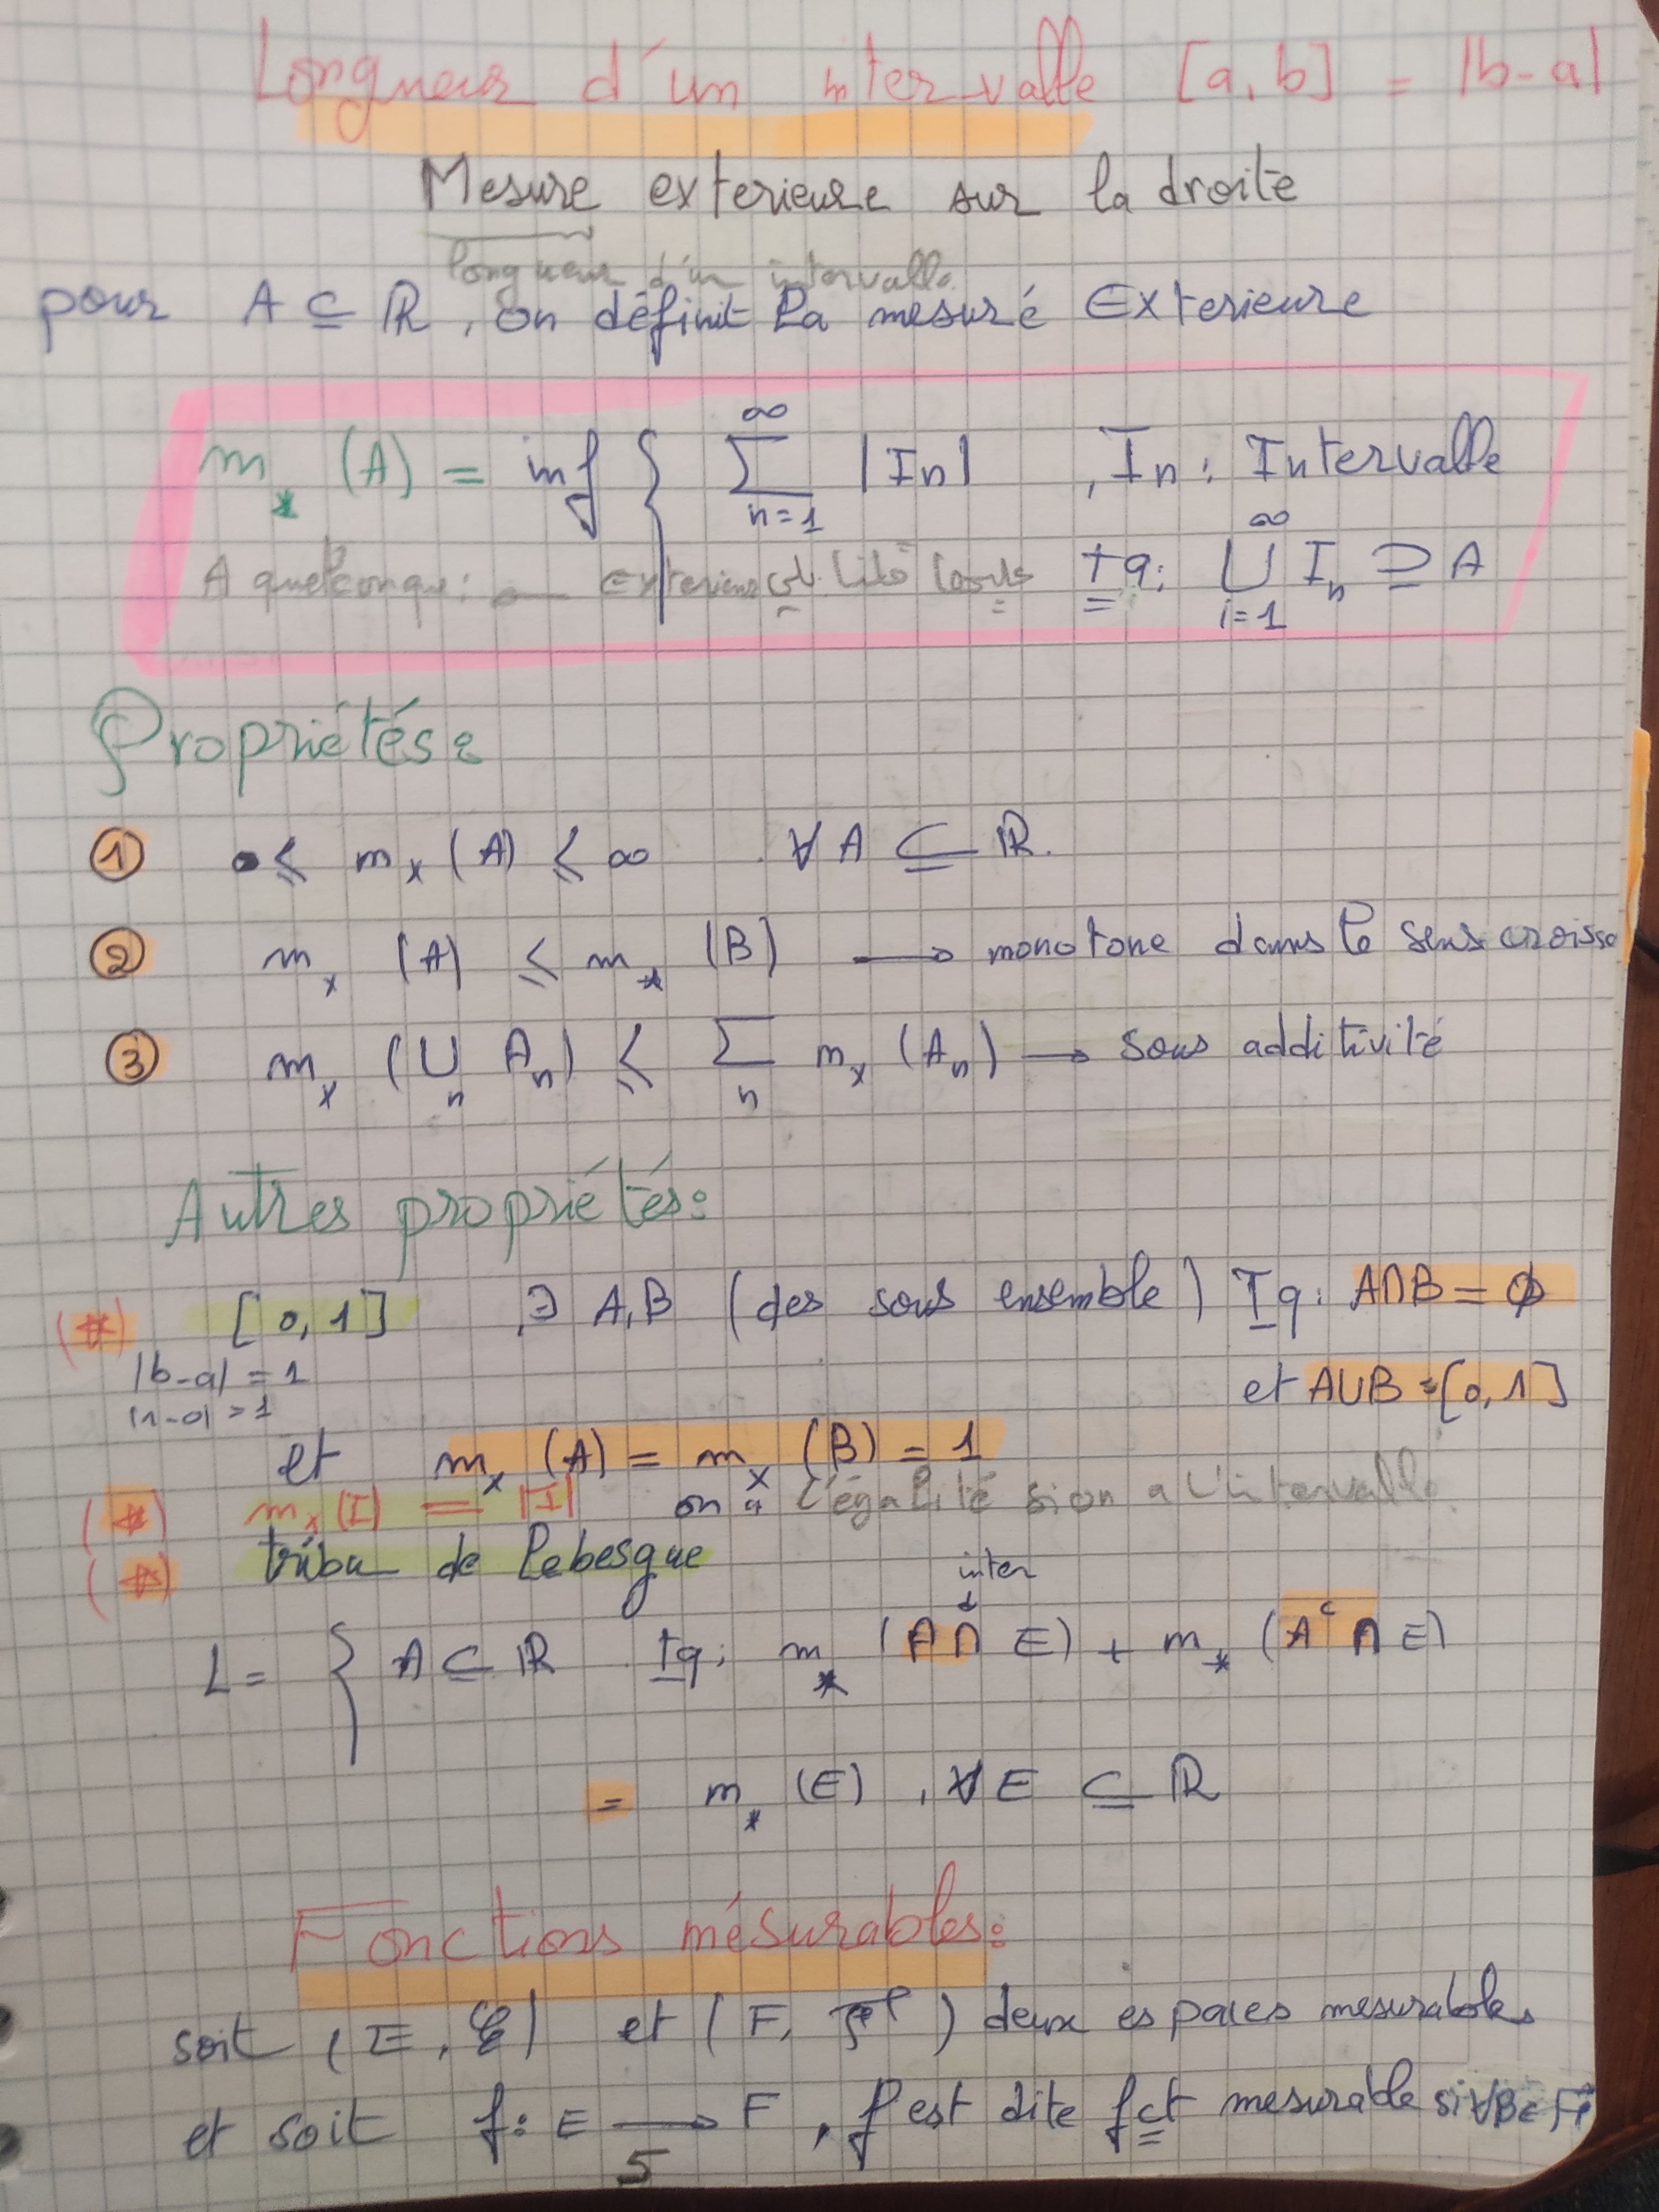 Longueur d'un intervalle [a,b] = |b-a|
Mesure exterieure sur la droite
longueur d'un intervalle
pour A ⊆ ℝ, on définit la mesuré Exterieure
m_* (A) = inf { ∑_{n=1}^{∞} |In| , In : Intervalle
A quelconque : exterieur Tq: ⋃_{i=1}^{∞} I_n ⊇ A
Propriétés :
① 0 ≤ m_x (A) ≤ ∞ . ∀ A ⊆ ℝ.
② m_x (A) ≤ m_* (B) → monotone dans le sens croissa
③ m_x (⋃_n A_n) ≤ ∑_n m_x (A_n) → sous additivité
Autres propriétés:
(*) [0,1] , ∃ A,B (des sous ensemble) Tq: A∩B = ∅
|b-a| = 1
et A∪B = [0,1]
|1-0| = 1
et m_x (A) = m_x (B) = 1
(*) m_x (I) = |I| on a l'égalité si on a l'intervalle.
(*) tribu de lebesgue
inter
↓
L = { A ⊆ ℝ Tq: m_* (A ∩ E) + m_* (A^c ∩ E)
= m_* (E) , ∀ E ⊆ ℝ
Fonctions mésurables:
soit (E, ℰ) et (F, ℱ) deux espaces mesurables
et soit f: E → F , f est dite fct mesurable si ∀B∈ ℱ
5